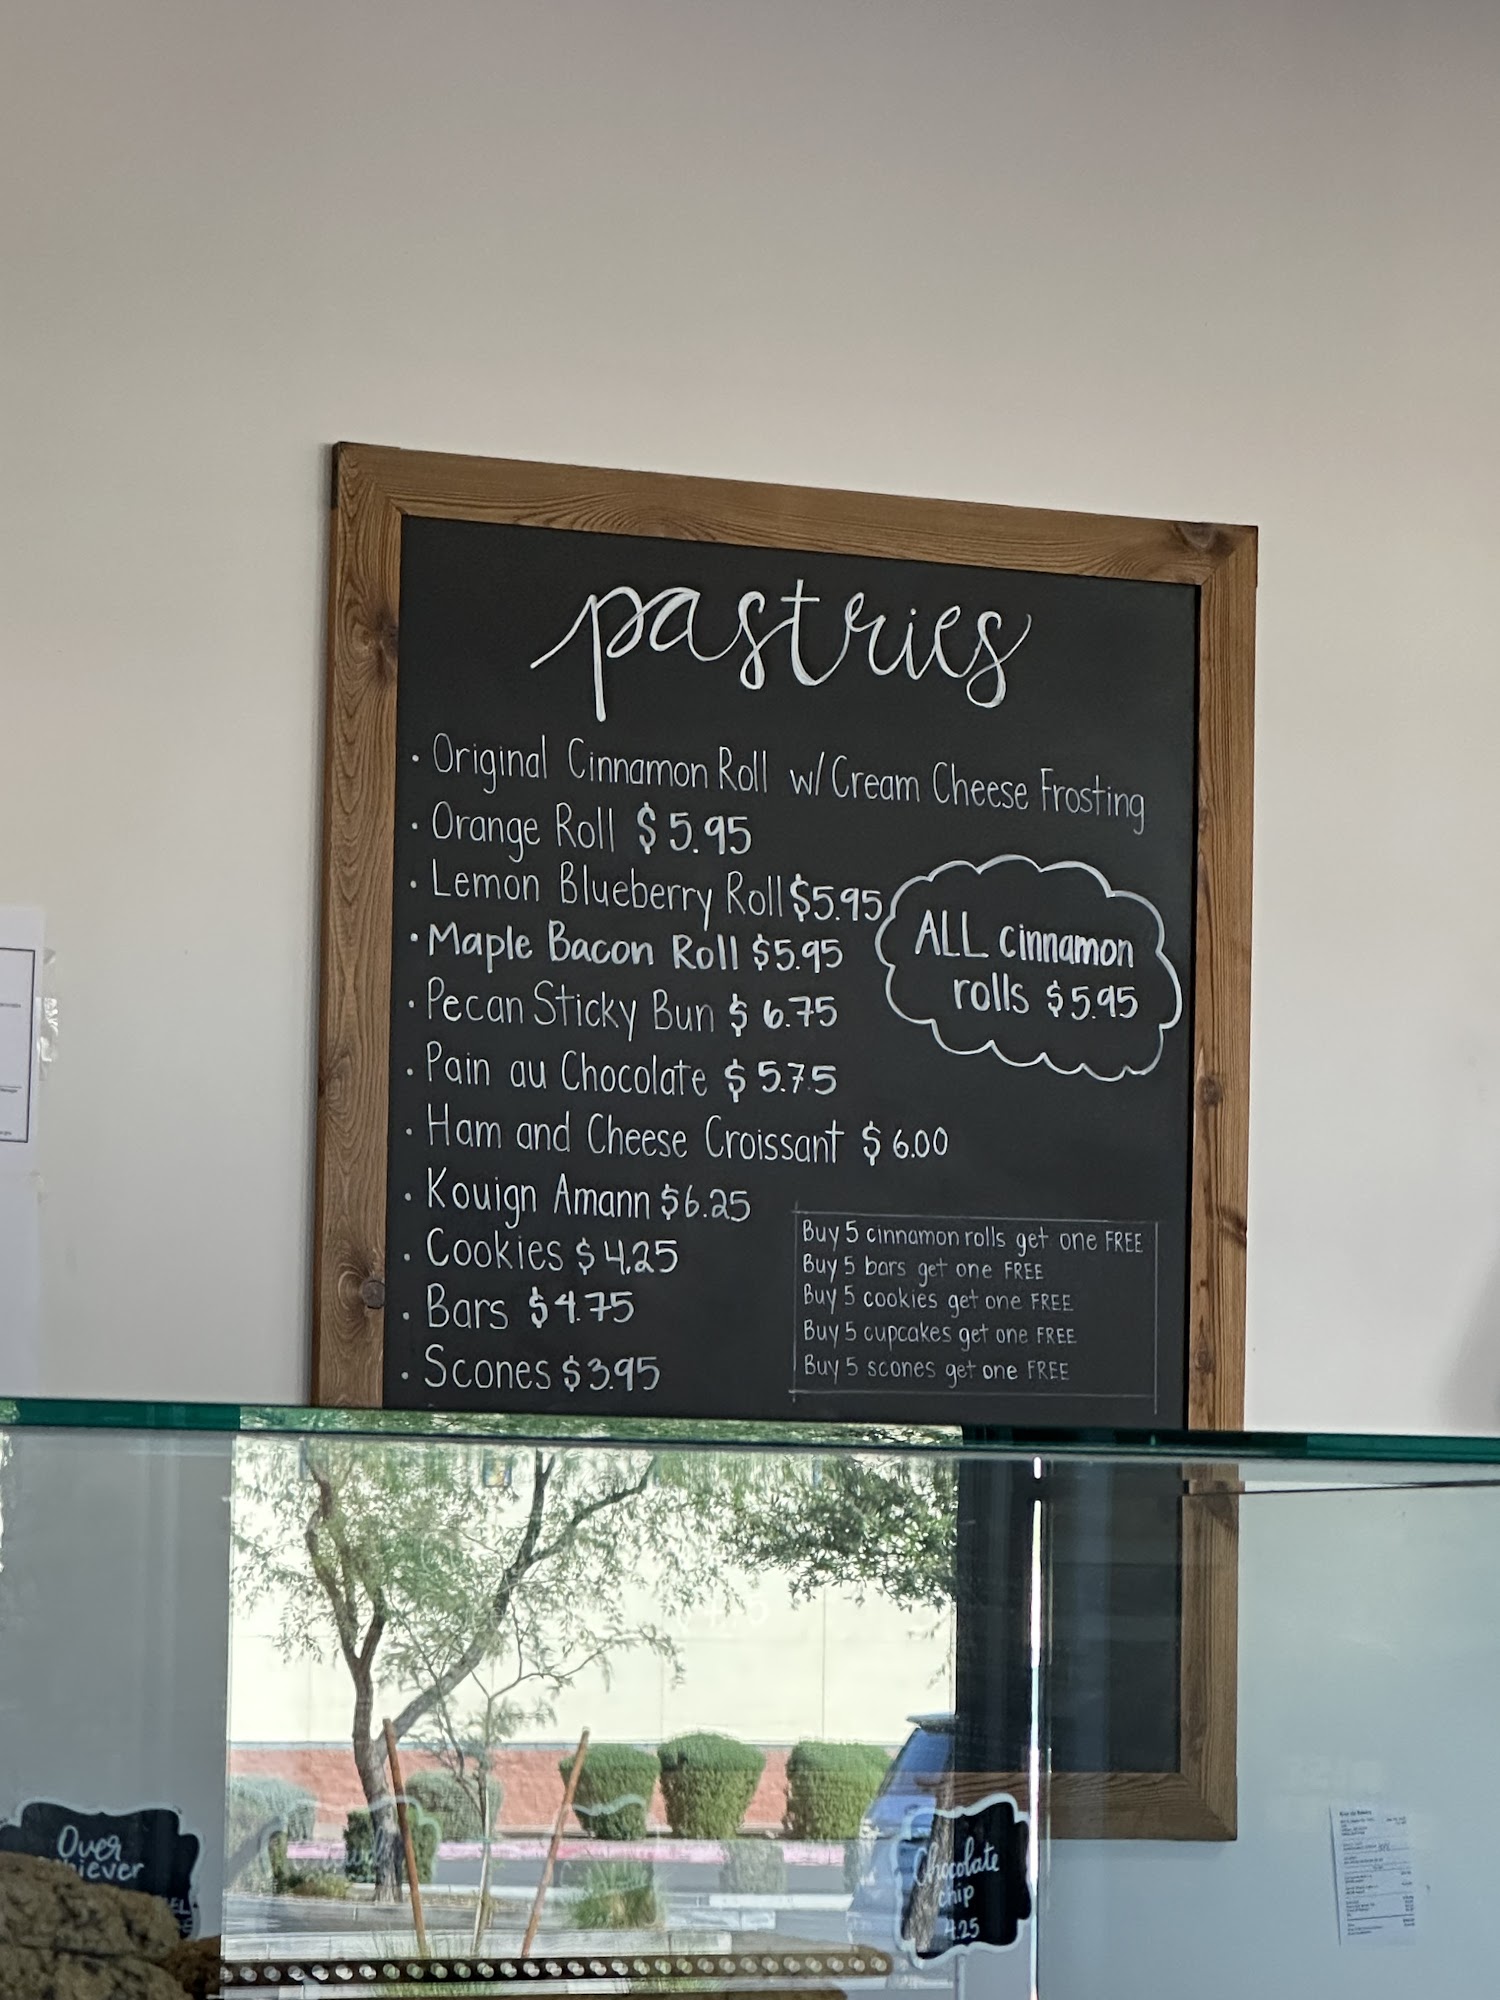 pastries
· Original Cinnamon Roll w/ Cream Cheese Frosting
· Orange Roll $5.95
· Lemon Blueberry Roll $5.95
· Maple Bacon Roll $5.95
· Pecan Sticky Bun $6.75
· Pain au Chocolate $5.75
· Ham and Cheese Croissant $6.00
· Kouign Amann $6.25
· Cookies $4.25
· Bars $4.75
· Scones $3.95
ALL cinnamon
rolls $5.95
Buy 5 cinnamon rolls get one FREE
Buy 5 bars get one FREE
Buy 5 cookies get one FREE
Buy 5 cupcakes get one FREE
Buy 5 scones get one FREE
Over
Chocolate
chip
4.25